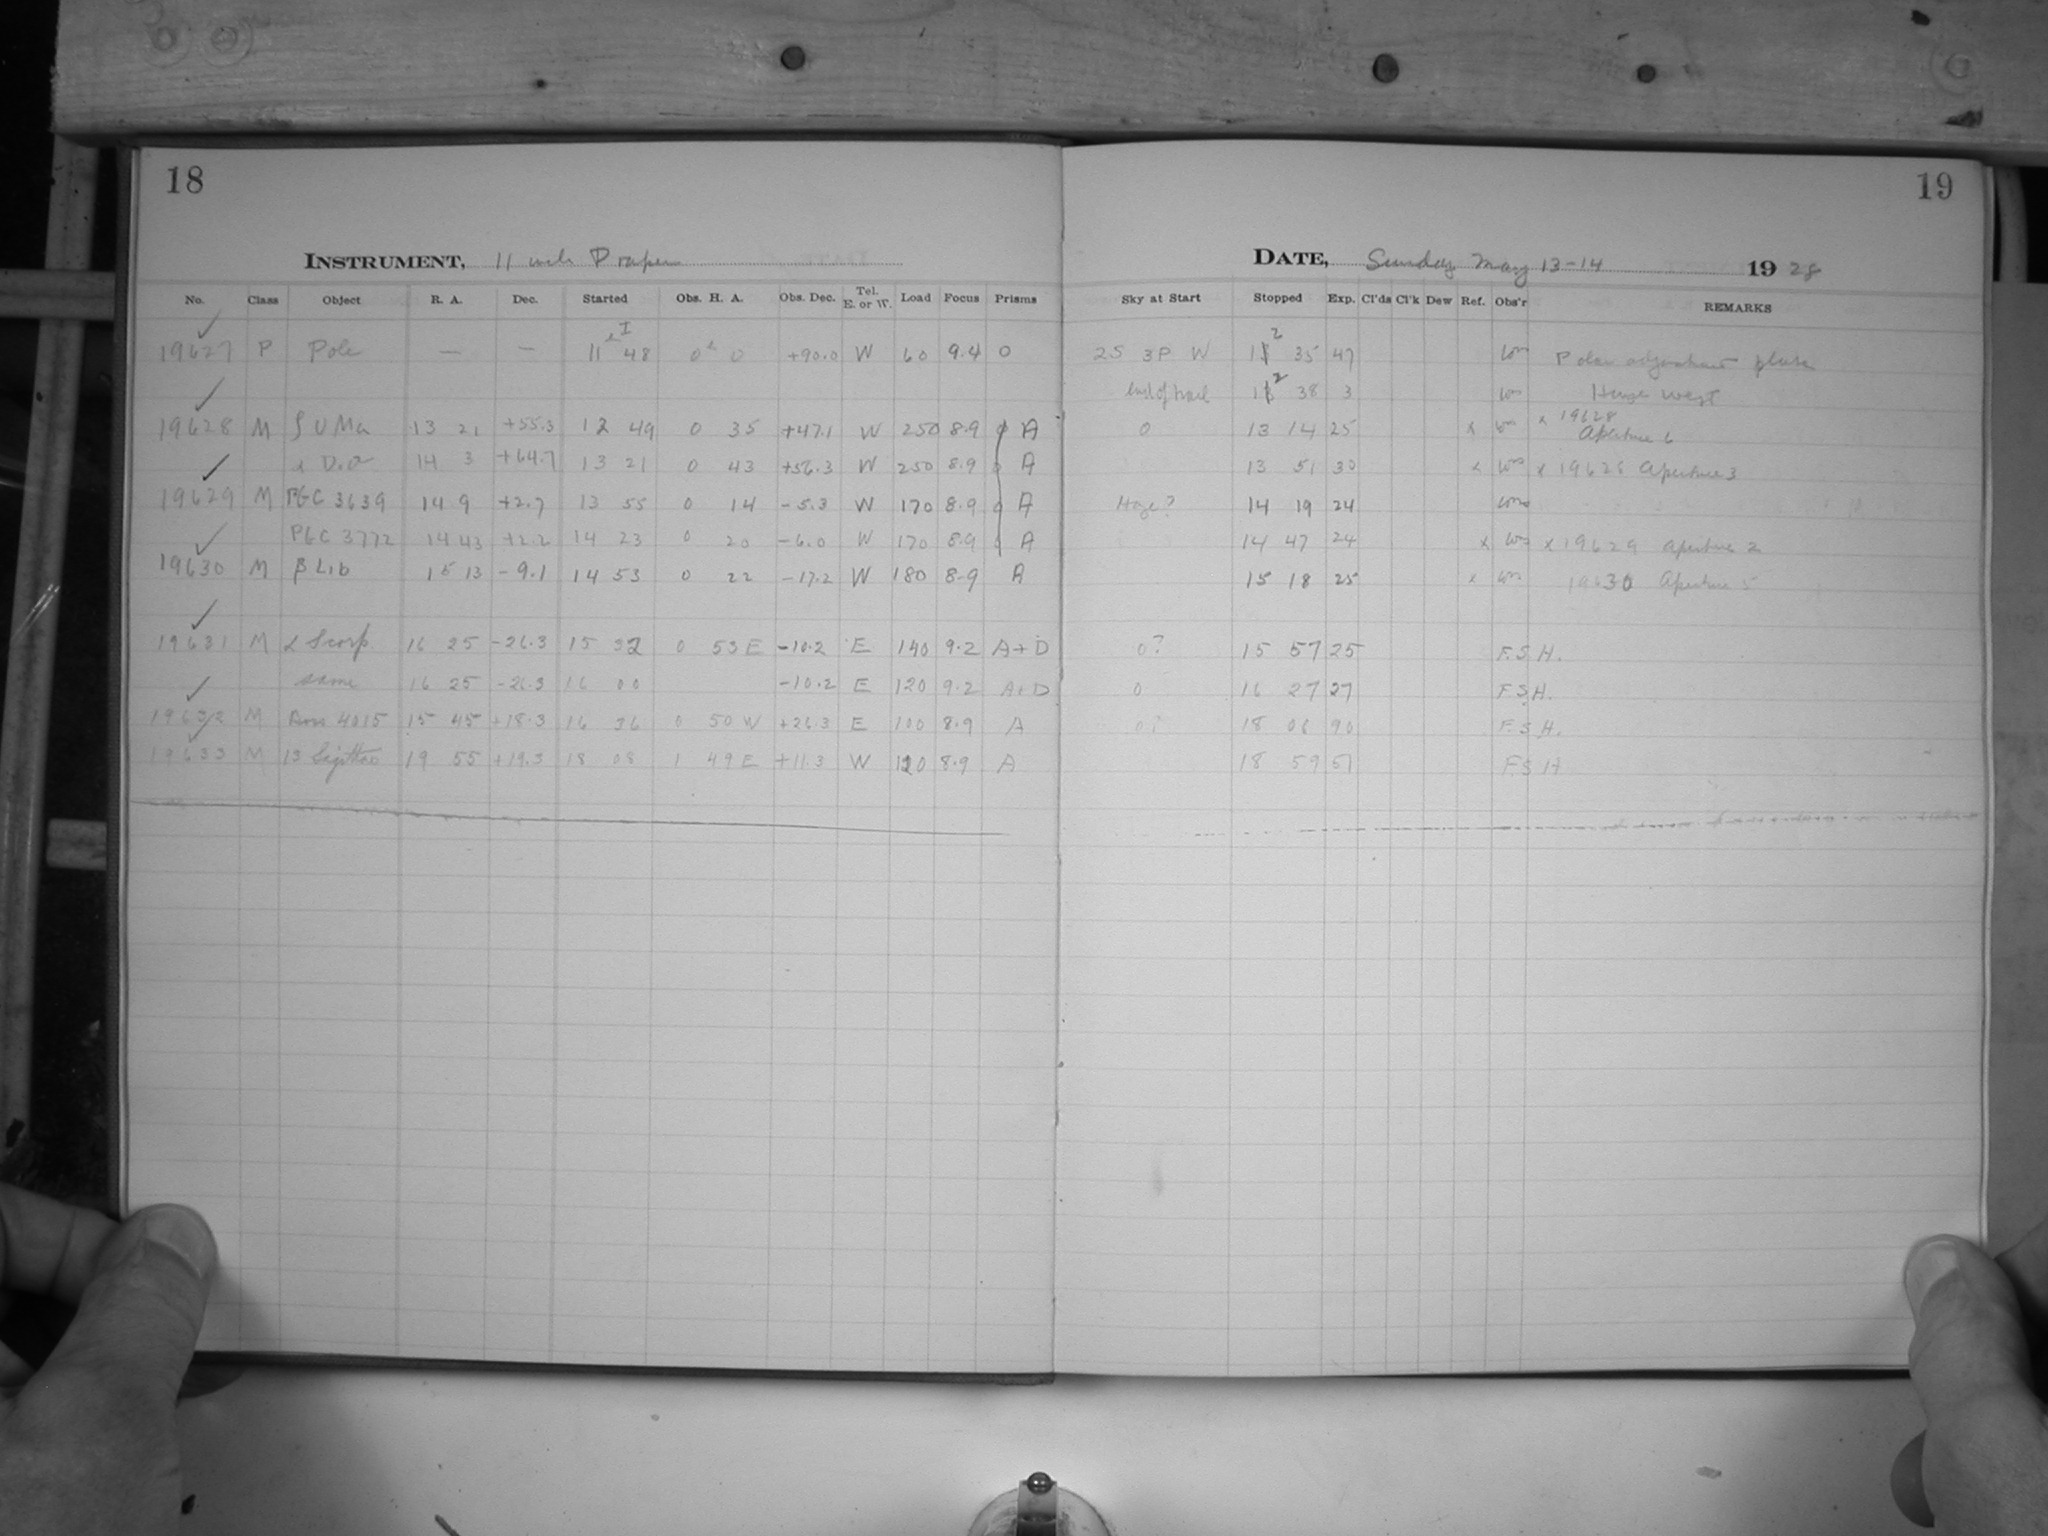 18
INSTRUMENT, 11 inch Draper
No. Class Object R. A. Dec. Started Obs. H. A. Obs. Dec. Tel. E. or W. Load Focus Prisms
19627 P Pole — — 11 48 0 0 +90.0 W 60 9.4 0
19628 M ζ UMa 13 21 +55.3 12 49 0 35 +47.1 W 250 8.9 A
α Dra 14 3 +64.7 13 21 0 43 +56.3 W 250 8.9 A
19629 M PGC 3639 14 9 +2.7 13 55 0 14 -5.3 W 170 8.9 A
PGC 3772 14 43 +2.2 14 23 0 20 -6.0 W 170 8.9 A
19630 M β Lib 15 13 -9.1 14 53 0 22 -17.2 W 180 8.9 A
19631 M α Scorp 16 25 -26.3 15 32 0 53 E -10.2 E 140 9.2 A+D
same 16 25 -26.3 16 00 -10.2 E 120 9.2 A+D
19632 M Boss 4015 15 45 +18.3 16 36 0 50 W +26.3 E 100 8.9 A
19633 M 13 Sagittae 19 55 +19.3 18 08 1 49 E +11.3 W 120 8.9 A
19
DATE, Sunday May 13-14 1928
Sky at Start Stopped Exp. Cl'ds Cl'k Dew Ref. Obs'r REMARKS
2S 3P W 12 35 47 Polar adjustment plate
End of trail 12 38 3 Haze west
0 13 14 25 x x 19628 Aperture 6
13 51 30 x x 19628 Aperture 3
Haze? 14 19 24
14 47 24 x x 19629 Aperture 2
15 18 25 x 19630 Aperture 5
0? 15 57 25 F.S.H.
0 16 27 27 F.S.H.
0? 18 06 90 F.S.H.
18 59 51 F.S.H